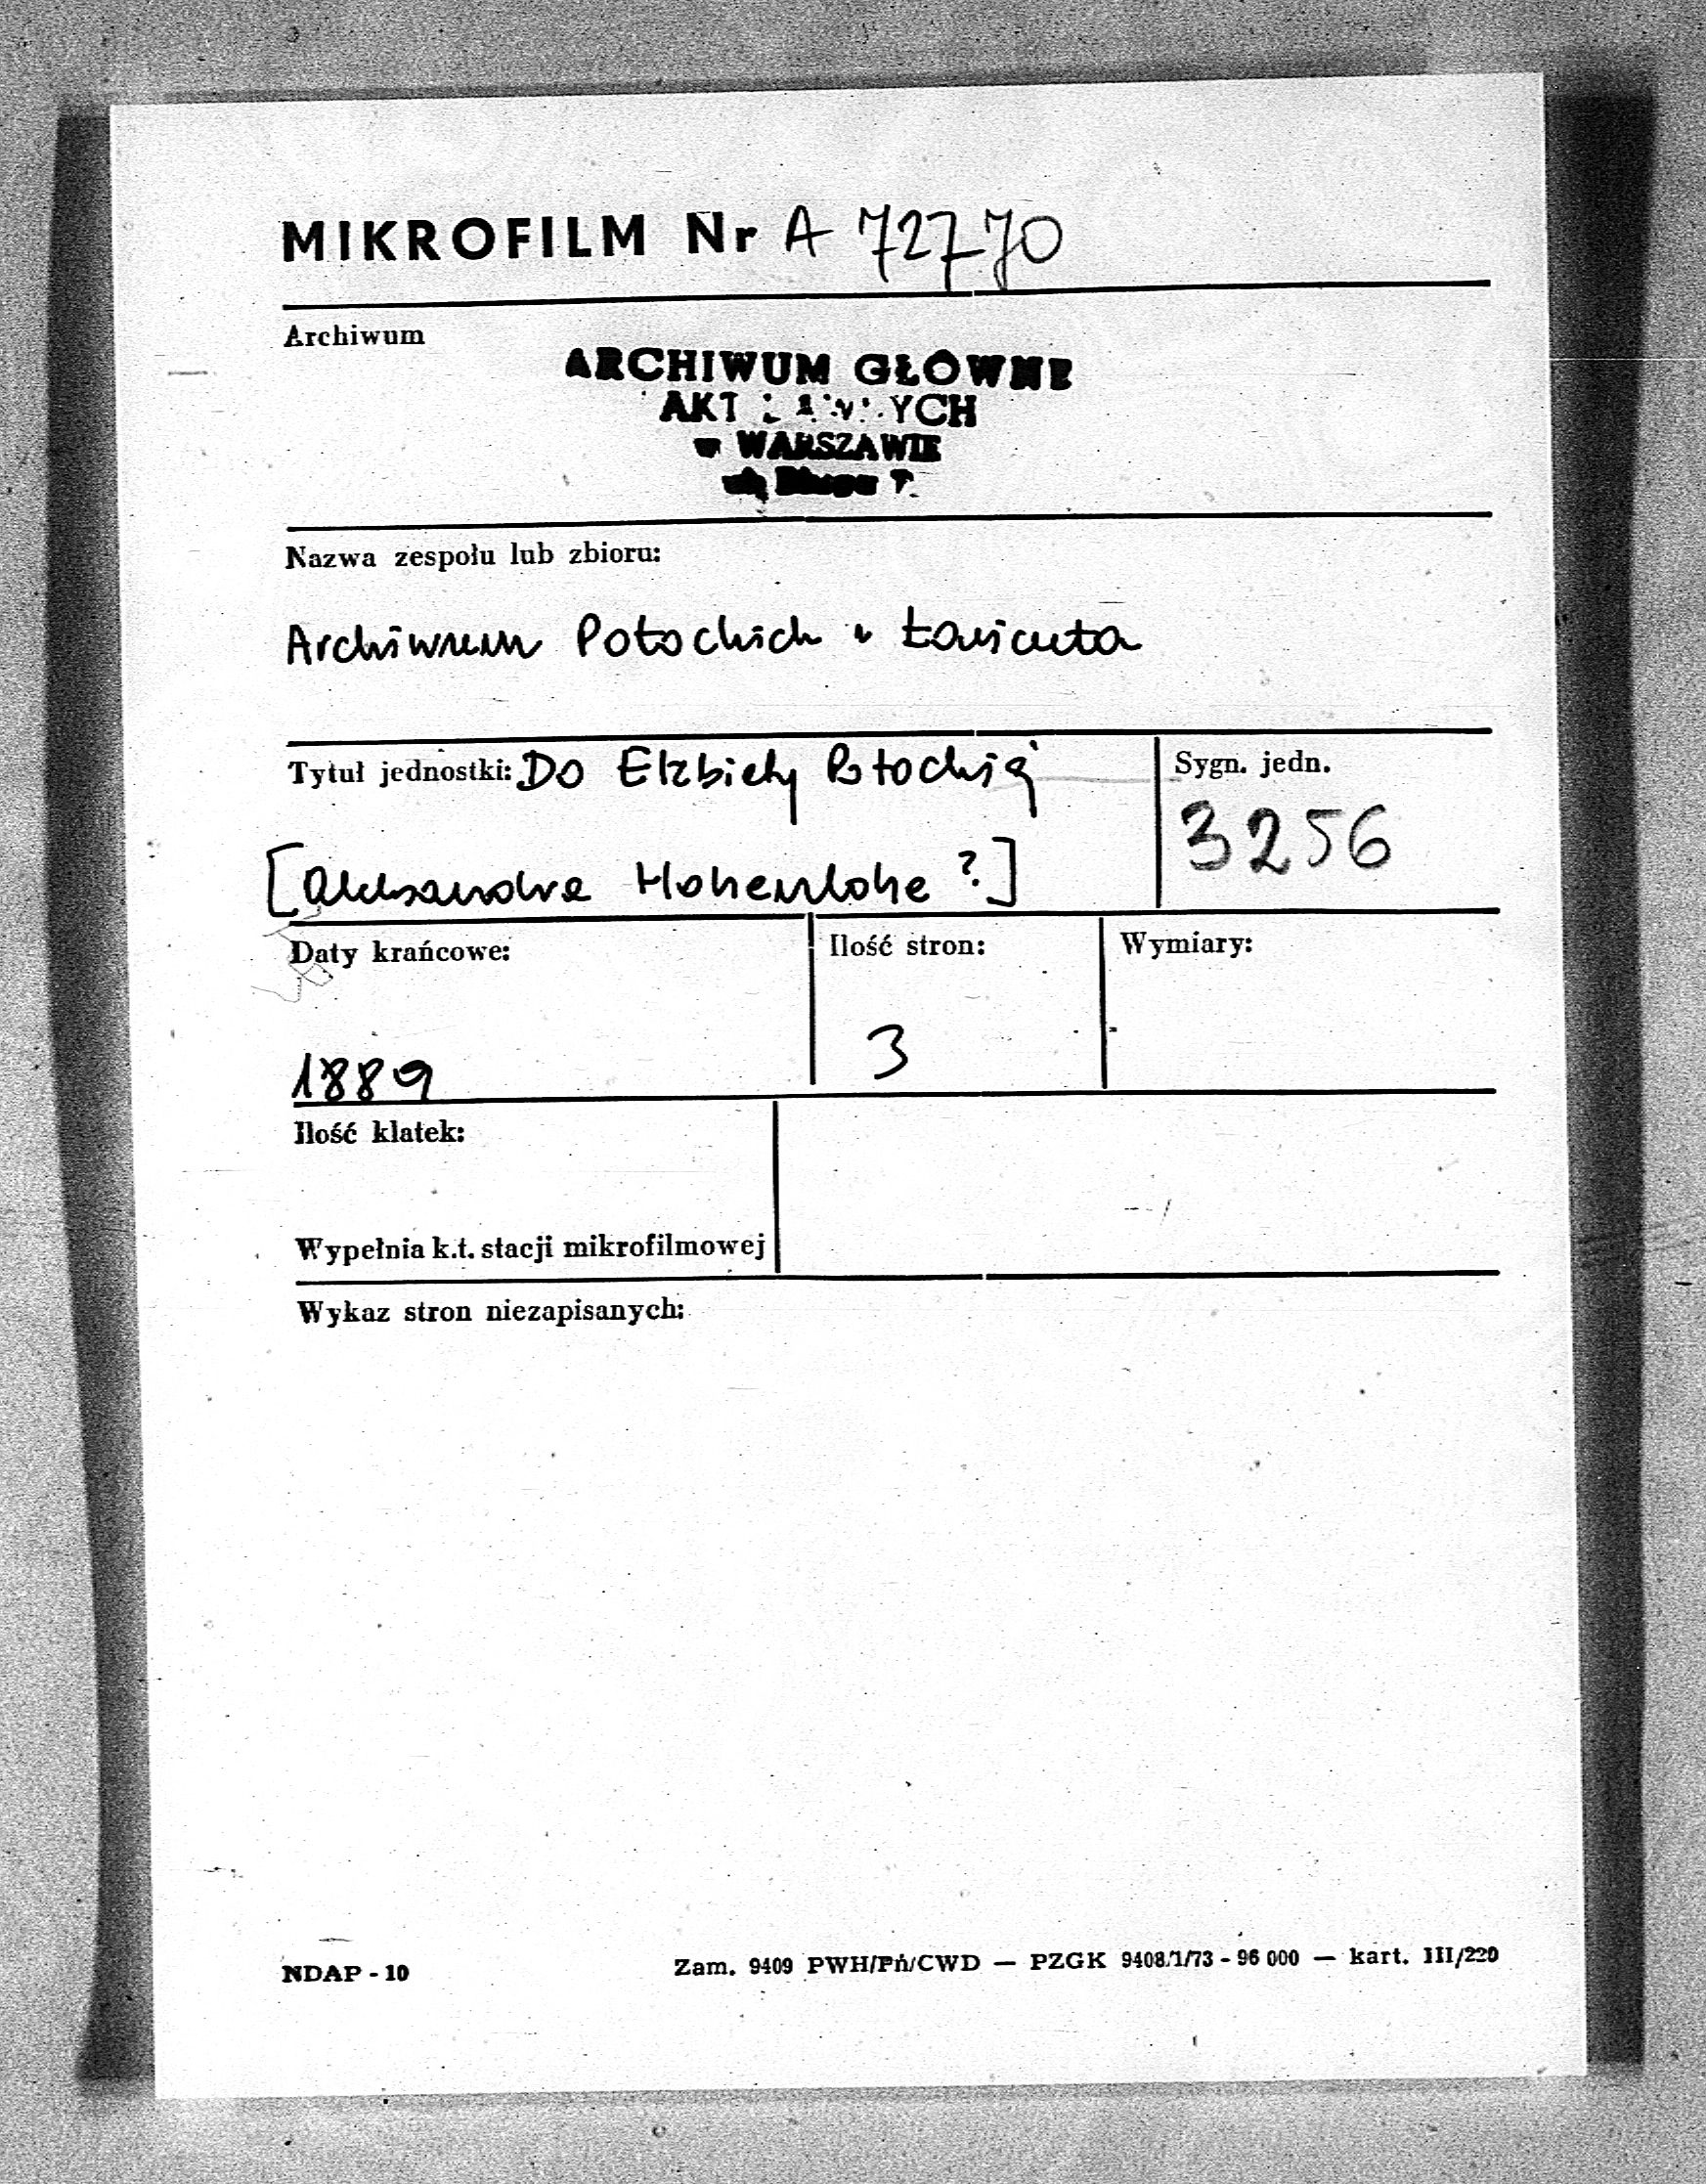 MIKROFILM Nr A 72770
Archiwum
ARCHIWUM GŁÓWNE
AKT YCH
w WARSZAWIE
Nazwa zespołu lub zbioru:
Archiwum Potockich z Łańcuta
Tytuł jednostki: Do Elżbiety Potockiej
[Aleksandra Hohenlohe ?]
Sygn. jedn.
3256
Daty krańcowe:
1889
Ilość stron:
3
Wymiary:
Ilość klatek:
Wypełnia k.t. stacji mikrofilmowej
Wykaz stron niezapisanych:
NDAP - 10
Zam. 9409 PWH/Pń/CWD — PZGK 9408/1/73 - 96 000 — kart. III/220